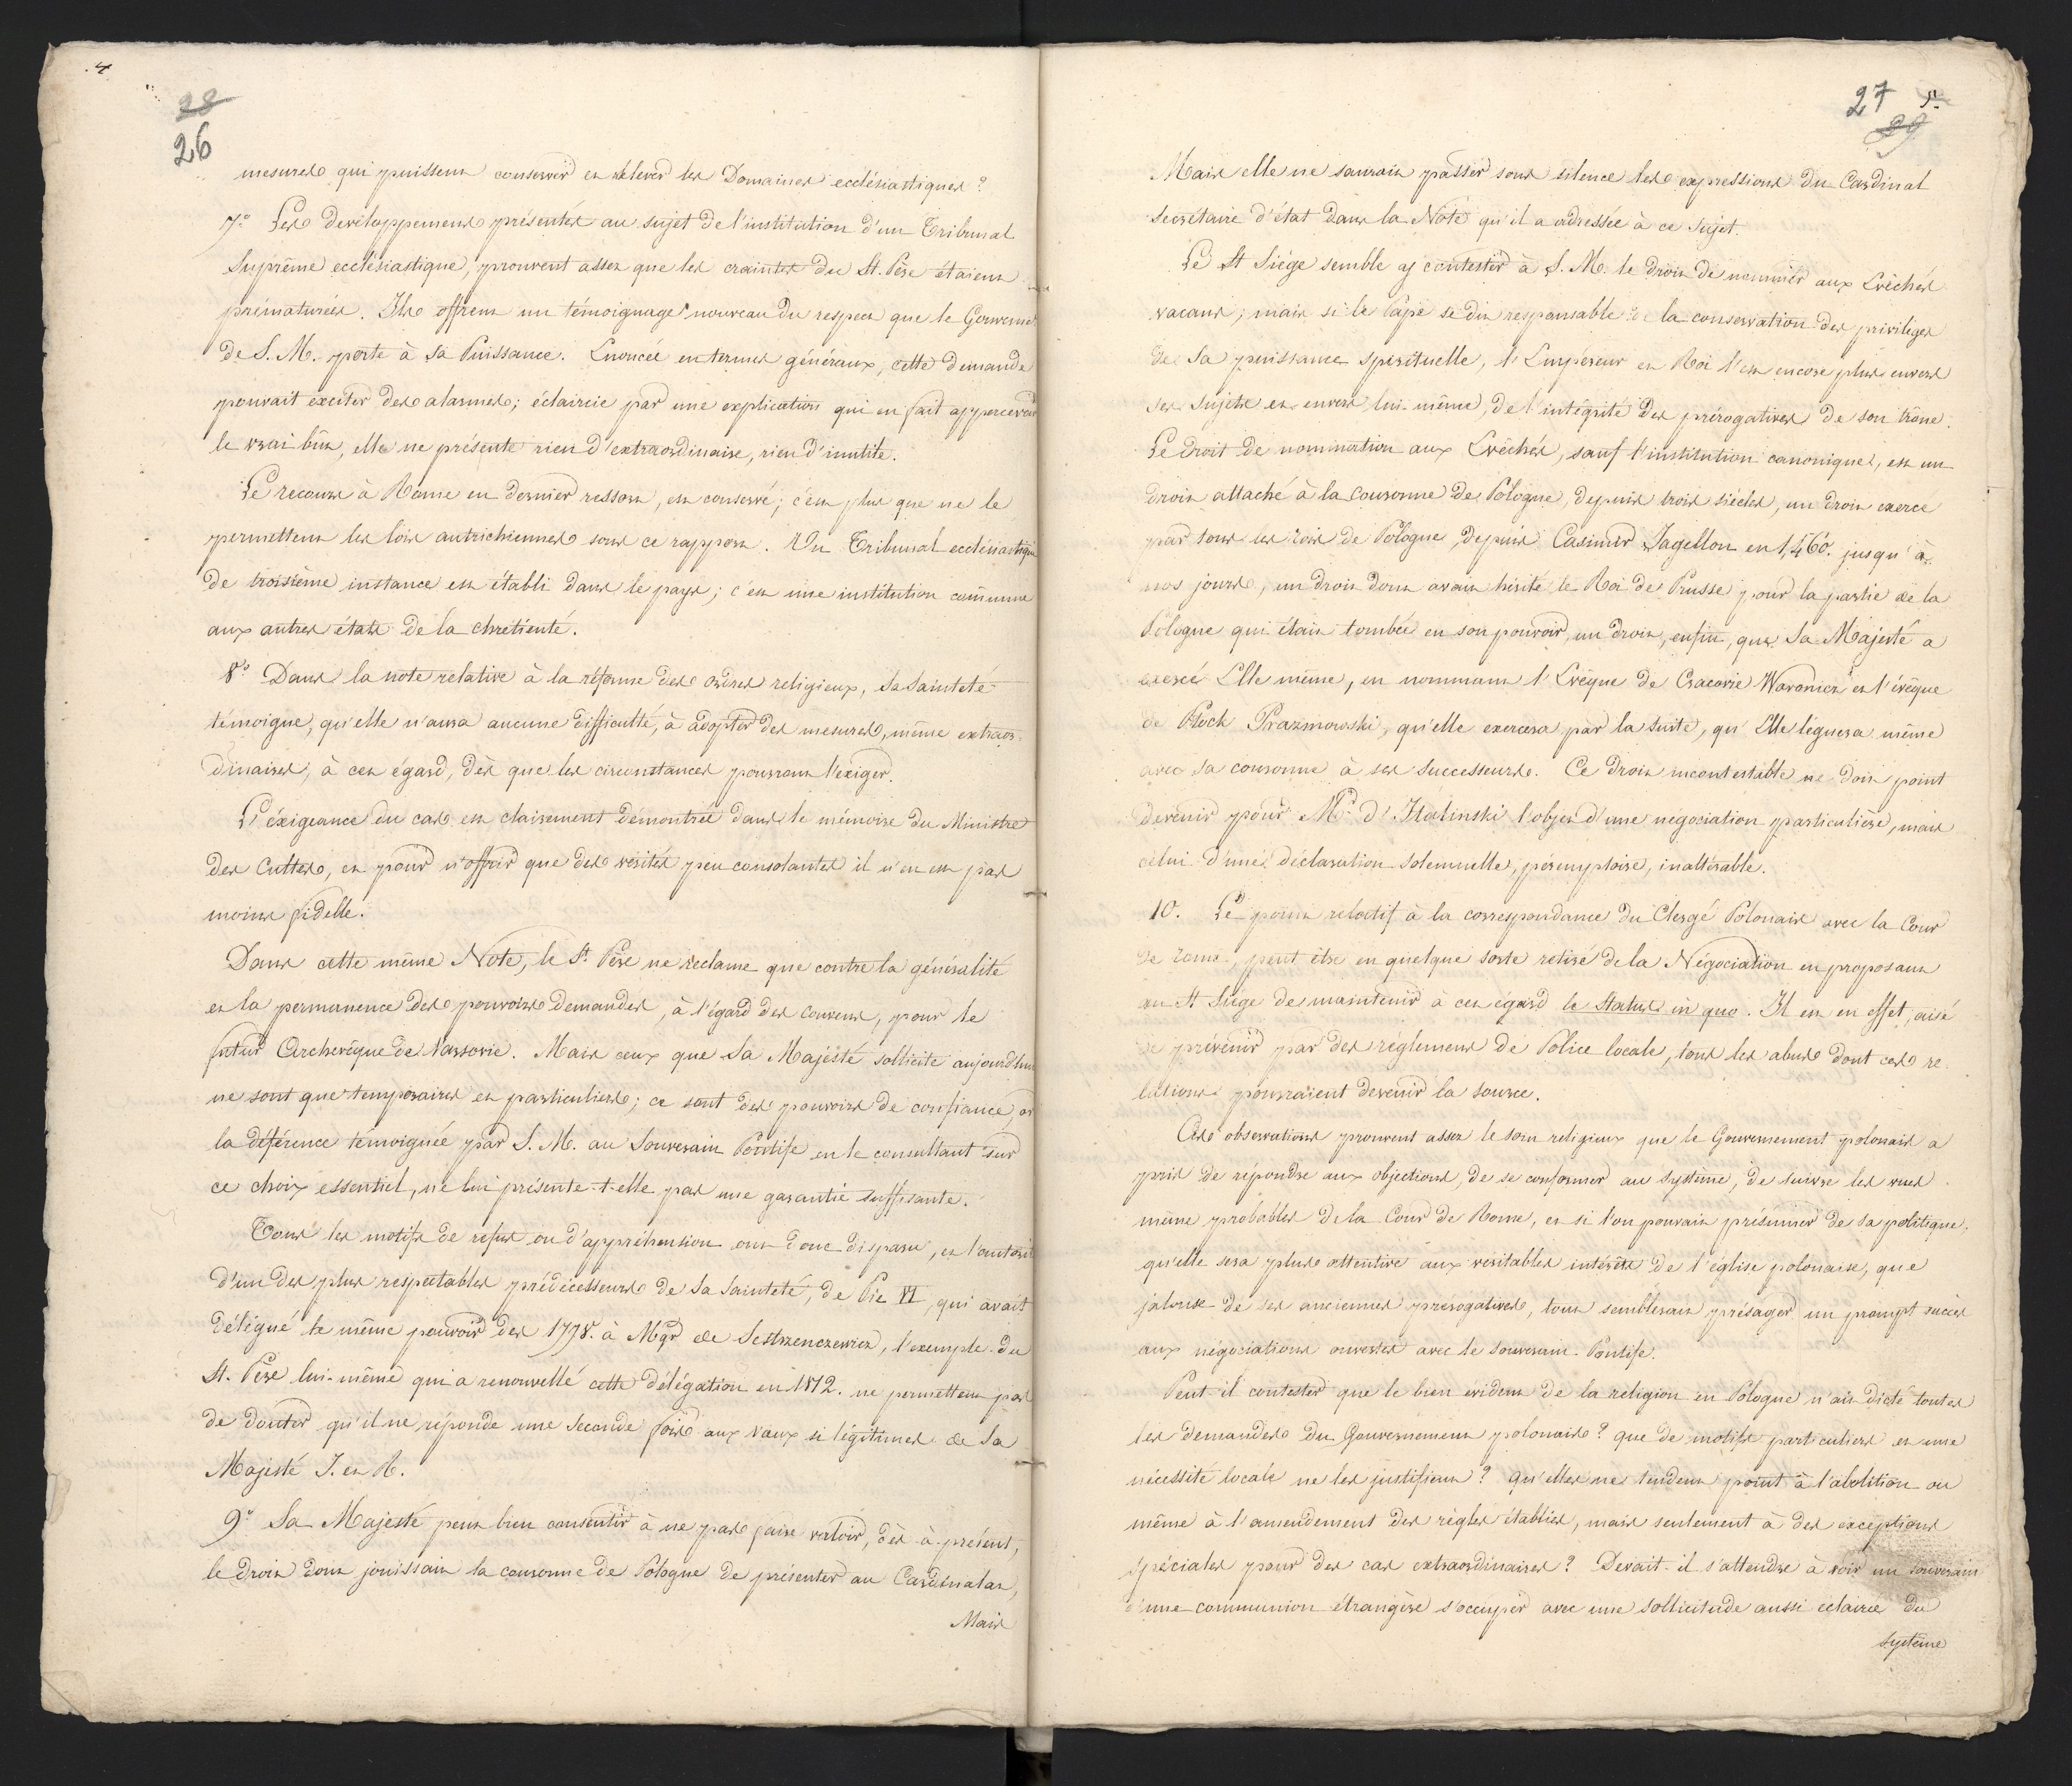 4
28
26
mesures qui puissent conserver et relever les Domaines ecclésiastiques?
7° Les développemens présentés au sujet de l'institution d'un Tribunal
Suprême ecclésiastique, prouvent assez que les craintes du St. Père étaient
prématurées. Ils offrent un témoignage nouveau du respect que le Gouvernet
de S. M. porte à Sa Puissance. Enoncée en termes généraux, cette demande
pouvait exciter des alarmes; éclaircie par une explication qui en fait appercevoir
le vrai bût, elle ne présente rien d'extraordinaire, rien d'inutile.
Le recours à Rome en dernier ressort, est conservé; c'est plus que ne le
permettent les loix autrichiennes sous ce rapport. Un Tribunal ecclésiastique
de troisième instance est établi dans le pays; c'est une institution commune
aux autres états de la chretienté.
8° Dans la note relative à la réforme des ordres religieux, Sa Sainteté
témoigne, qu'elle n'aura aucune difficulté, à adopter des mesures, même extraor-
dinaires, à cet égard, dès que les circonstances pourront l'exiger.
L'éxigeance du cas est clairement démontrée dans le mémoire du Ministre
des Cultes, et pour n'offrir que des vérités peu consolantes il n'en est pas
moins fidelle.
Dans cette même Note, le St. Père ne reclame que contre la généralité
et la permanence des pouvoirs demandés, à l'égard des couvens, pour le
futur Archevêque de Varsovie. Mais ceux que Sa Majesté sollicite aujourdhui
ne sont que temporaires et particuliers; ce sont des pouvoirs de confiance, or
la déférence témoignée par S. M. au Souverain Pontife en le consultant sur
ce choix essentiel, ne lui présente-t-elle pas une garantie suffisante.
Tous les motifs de refus ou d'appréhension ont donc disparu, et l'autorité
d'un des plus respectables prédécesseurs de Sa Sainteté, de Pie VI, qui avait
délégué le même pouvoir dès 1798. à Mgr de Sestrzenczewicz, l'exemple du
St. Père lui-même qui a renouvellé cette délégation en 1812. ne permettent pas
de douter qu'il ne réponde une seconde fois aux vœux si légitimes de Sa
Majesté I. et R.
9° Sa Majesté peut bien consentir à ne pas faire valoir, dès-à-présent,
le droit dont jouissait la couronne de Pologne de présenter au Cardinalat,
Mais
27 5.
29
Mais elle ne saurait passer sous silence les expressions du Cardinal
secrétaire d'état dans la Note qu'il a adressée à ce sujet.
Le St Siége semble y contester à S. M. le droit de nommer aux Evêchés
vacans; mais si le Pape se dit responsable de la conservation des privilèges
de Sa puissance spirituelle, l'Empereur et Roi l'est encore plus envers
ses sujets et envers lui-même, de l'intégrité des prérogatives de son trône.
Le droit de nomination aux Evêchés, sauf l'institution canonique, est un
droit attaché à la couronne de Pologne, depuis trois siècles, un droit exercé
par tous les rois de Pologne, depuis Casimir Jagellon en 1460. jusqu'à
nos jours, un droit dont avait hérité le Roi de Prusse pour la partie de la
Pologne qui était tombée en son pouvoir, un droit, enfin, que Sa Majesté a
exercé Elle même, en nommant l'Evêque de Cracovie Woronicz et l'évêque
de Płock Prazmowski, qu'elle exercera par la suite, qu'Elle léguera même
avec sa couronne à ses successeurs. Ce droit incontestable ne doit point
devenir pour Mr. d'Italinski l'objet d'une négociation particulière, mais
celui d'une déclaration solemnelle, péremptoire, inaltérable.
10. Le point relatif à la correspondance du Clergé Polonais avec la Cour
de rome, peut être en quelque sorte retiré de la Négociation en proposant
au St Siége de maintenir à cet égard le status in quo. Il est en effet, aisé
de prévenir par des réglemens de Police locale, tous les abus dont ces re-
lations pourraient devenir la source.
Ces observations prouvent assez le soin religieux que le Gouvernement polonais a
pris de répondre aux objections, de se conformer au système, de suivre les vues
même probables de la Cour de Rome, et si l'on pouvait présumer de sa politique,
qu'elle sera plus attentive aux véritables intérêts de l'église polonaise, que
jalouse de ses anciennes prérogatives, tout semblerait présager un prompt succès
aux négociations ouvertes avec le souverain-Pontife.
Peut-il contester que le bien évident de la religion en Pologne n'ait dicté toutes
les demandes du Gouvernement polonais? que de motifs particuliers et une
nécessité locale ne les justifient? qu'elles ne tendent point à l'abolition ou
même à l'amendement des règles établies, mais seulement à des exceptions
spéciales pour des cas extraordinaires? Devait-il s'attendre à voir un souverain
d'une communion étrangère s'occuper avec une sollicitude aussi éclairée du
système